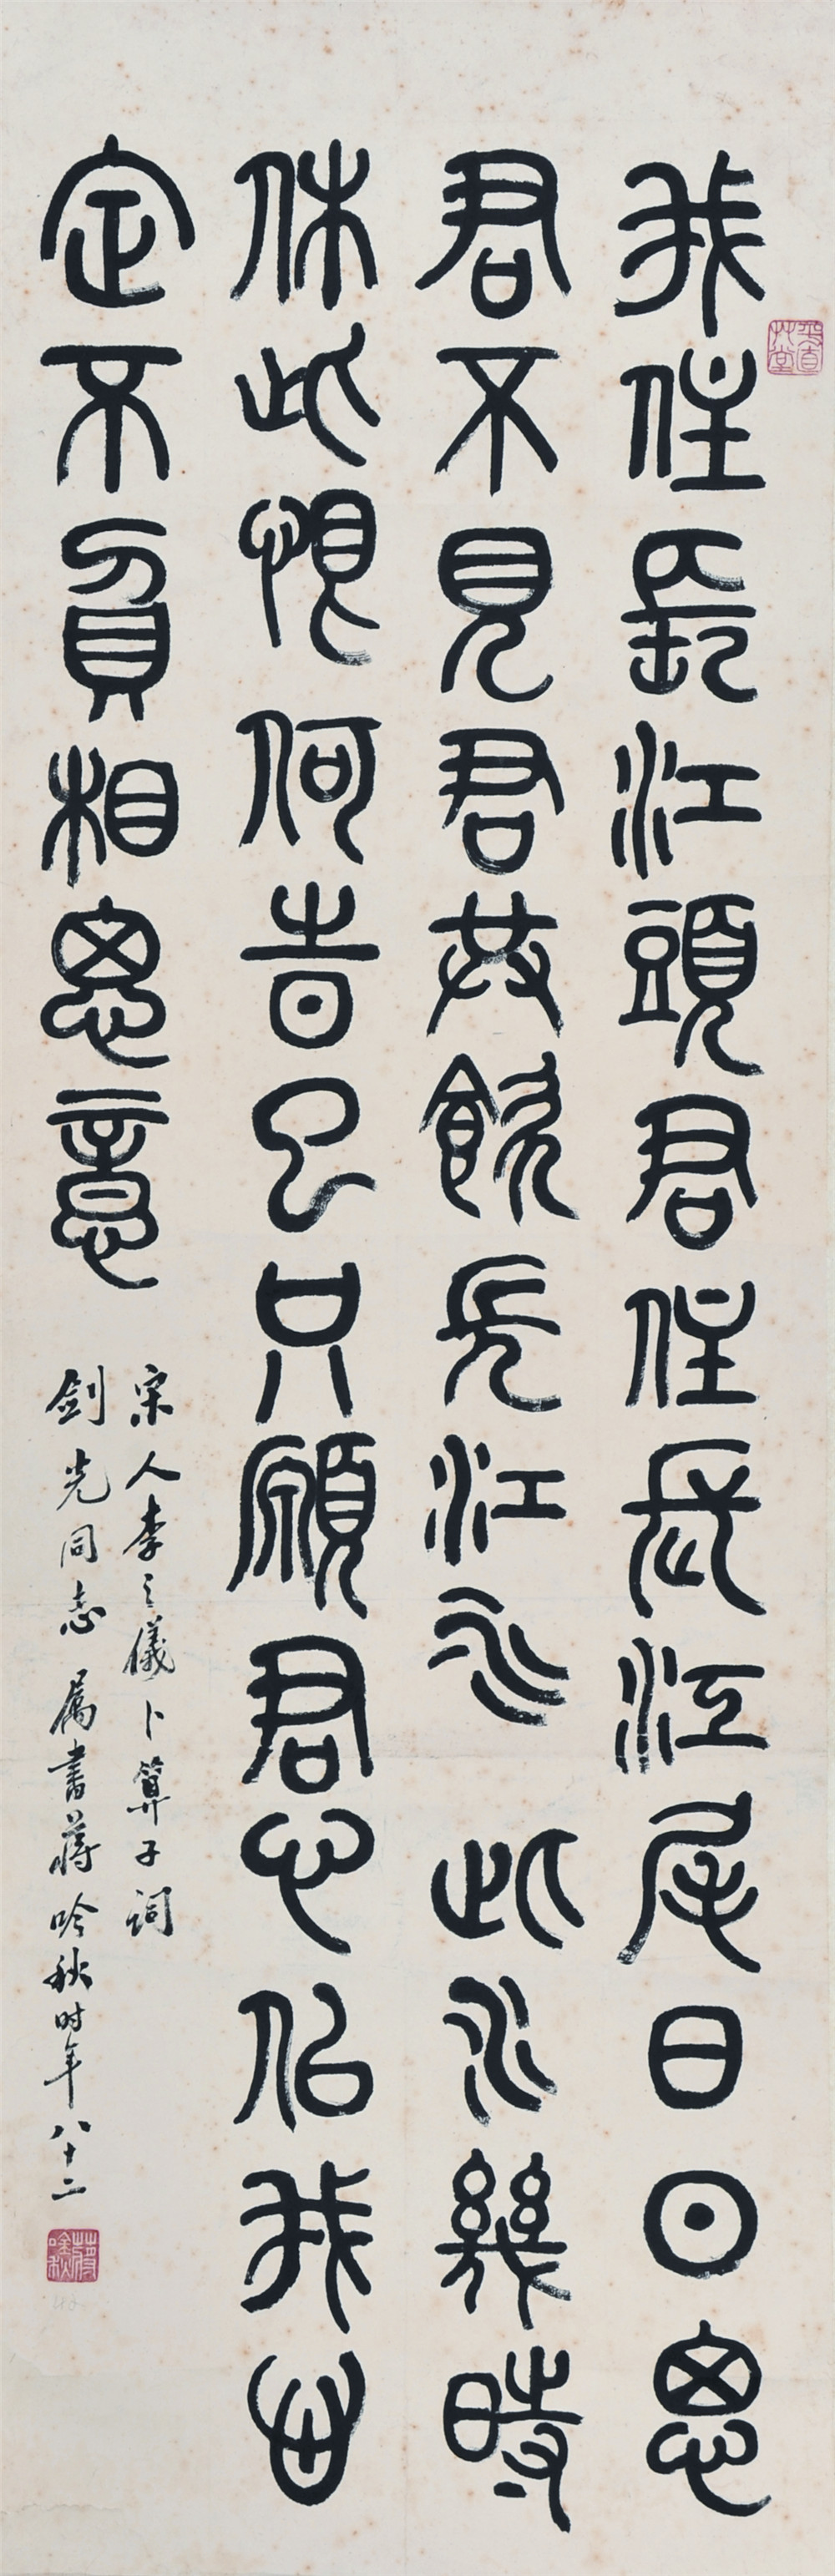 我住長江頭君住長江尾日日思
君不見君共飲長江水 此水幾時
休此恨何旹已只願君心似我心
定不負相思意
宋人李之儀卜算子詞
剑光同志 属書蔣吟秋时年八十二
蔣吟秋